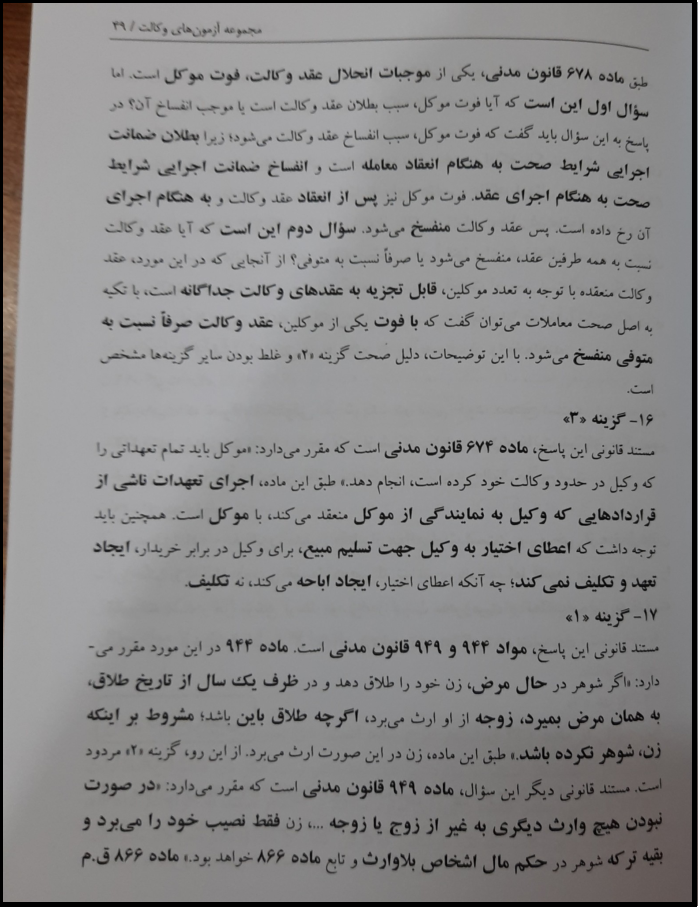 مجموعه آزمون‌های وکالت / ۴۹
طبق ماده ۶۷۸ قانون مدنی، یکی از موجبات انحلال عقد وکالت، فوت موکل است. اما
سؤال اول این است که آیا فوت موکل، سبب بطلان عقد وکالت است یا موجب انفساخ آن؟ در
پاسخ به این سؤال باید گفت که فوت موکل، سبب انفساخ عقد وکالت می‌شود؛ زیرا بطلان ضمانت
اجرایی شرایط صحت به هنگام انعقاد معامله است و انفساخ ضمانت اجرایی شرایط
صحت به هنگام اجرای عقد. فوت موکل نیز پس از انعقاد عقد وکالت و به هنگام اجرای
آن رخ داده است. پس عقد وکالت منفسخ می‌شود. سؤال دوم این است که آیا عقد وکالت
نسبت به همه طرفین عقد، منفسخ می‌شود یا صرفاً نسبت به متوفی؟ از آنجایی که در این مورد، عقد
وکالت منعقده با توجه به تعدد موکلین، قابل تجزیه به عقدهای وکالت جداگانه است، با تکیه
به اصل صحت معاملات می‌توان گفت که با فوت یکی از موکلین، عقد وکالت صرفاً نسبت به
متوفی منفسخ می‌شود. با این توضیحات، دلیل صحت گزینه «۲» و غلط بودن سایر گزینه‌ها مشخص
است.
۱۶- گزینه «۳»
مستند قانونی این پاسخ، ماده ۶۷۴ قانون مدنی است که مقرر می‌دارد: «موکل باید تمام تعهداتی را
که وکیل در حدود وکالت خود کرده است، انجام دهد.» طبق این ماده، اجرای تعهدات ناشی از
قراردادهایی که وکیل به نمایندگی از موکل منعقد می‌کند، با موکل است. همچنین باید
توجه داشت که اعطای اختیار به وکیل جهت تسلیم مبیع، برای وکیل در برابر خریدار، ایجاد
تعهد و تکلیف نمی‌کند؛ چه آنکه اعطای اختیار، ایجاد اباحه می‌کند، نه تکلیف.
۱۷- گزینه «۱»
مستند قانونی این پاسخ، مواد ۹۴۴ و ۹۴۹ قانون مدنی است. ماده ۹۴۴ در این مورد مقرر می-
دارد: «اگر شوهر در حال مرض، زن خود را طلاق دهد و در ظرف یک سال از تاریخ طلاق،
به همان مرض بمیرد، زوجه از او ارث می‌برد، اگرچه طلاق باین باشد؛ مشروط بر اینکه
زن، شوهر نکرده باشد.» طبق این ماده، زن در این صورت ارث می‌برد. از این رو، گزینه «۲» مردود
است. مستند قانونی دیگر این سؤال، ماده ۹۴۹ قانون مدنی است که مقرر می‌دارد: «در صورت
نبودن هیچ وارث دیگری به غیر از زوج یا زوجه ...، زن فقط نصیب خود را می‌برد و
بقیه ترکه شوهر در حکم مال اشخاص بلاوارث و تابع ماده ۸۶۶ خواهد بود.» ماده ۸۶۶ ق.م